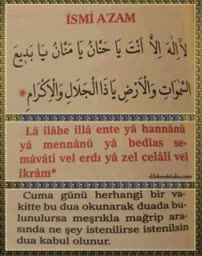 İSMİ A'ZAM
لَا اِلٰهَ اِلَّا اَنْتَ يَا حَنَّانُ يَا مَنَّانُ يَا بَدِيعَ
السَّمٰوَاتِ وَالْاَرْضِ يَا ذَا الْجَلَالِ وَالْاِكْرَامِ *
Lâ ilâhe illâ ente yâ hannânü
yâ mennânü yâ bedîas se-
mâvâti vel erdı yâ zel celâli vel
ikrâm*
Cuma günü herhangi bir va-
kitte bu dua okunarak duada bu-
lunulursa meşrıkla mağrip ara-
sında ne şey istenilirse istenilsin
dua kabul olunur.